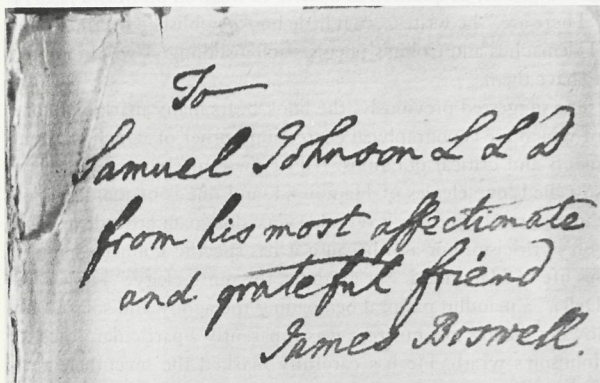 To
Samuel Johnson L L D
from his most affectionate
and grateful friend
James Boswell.